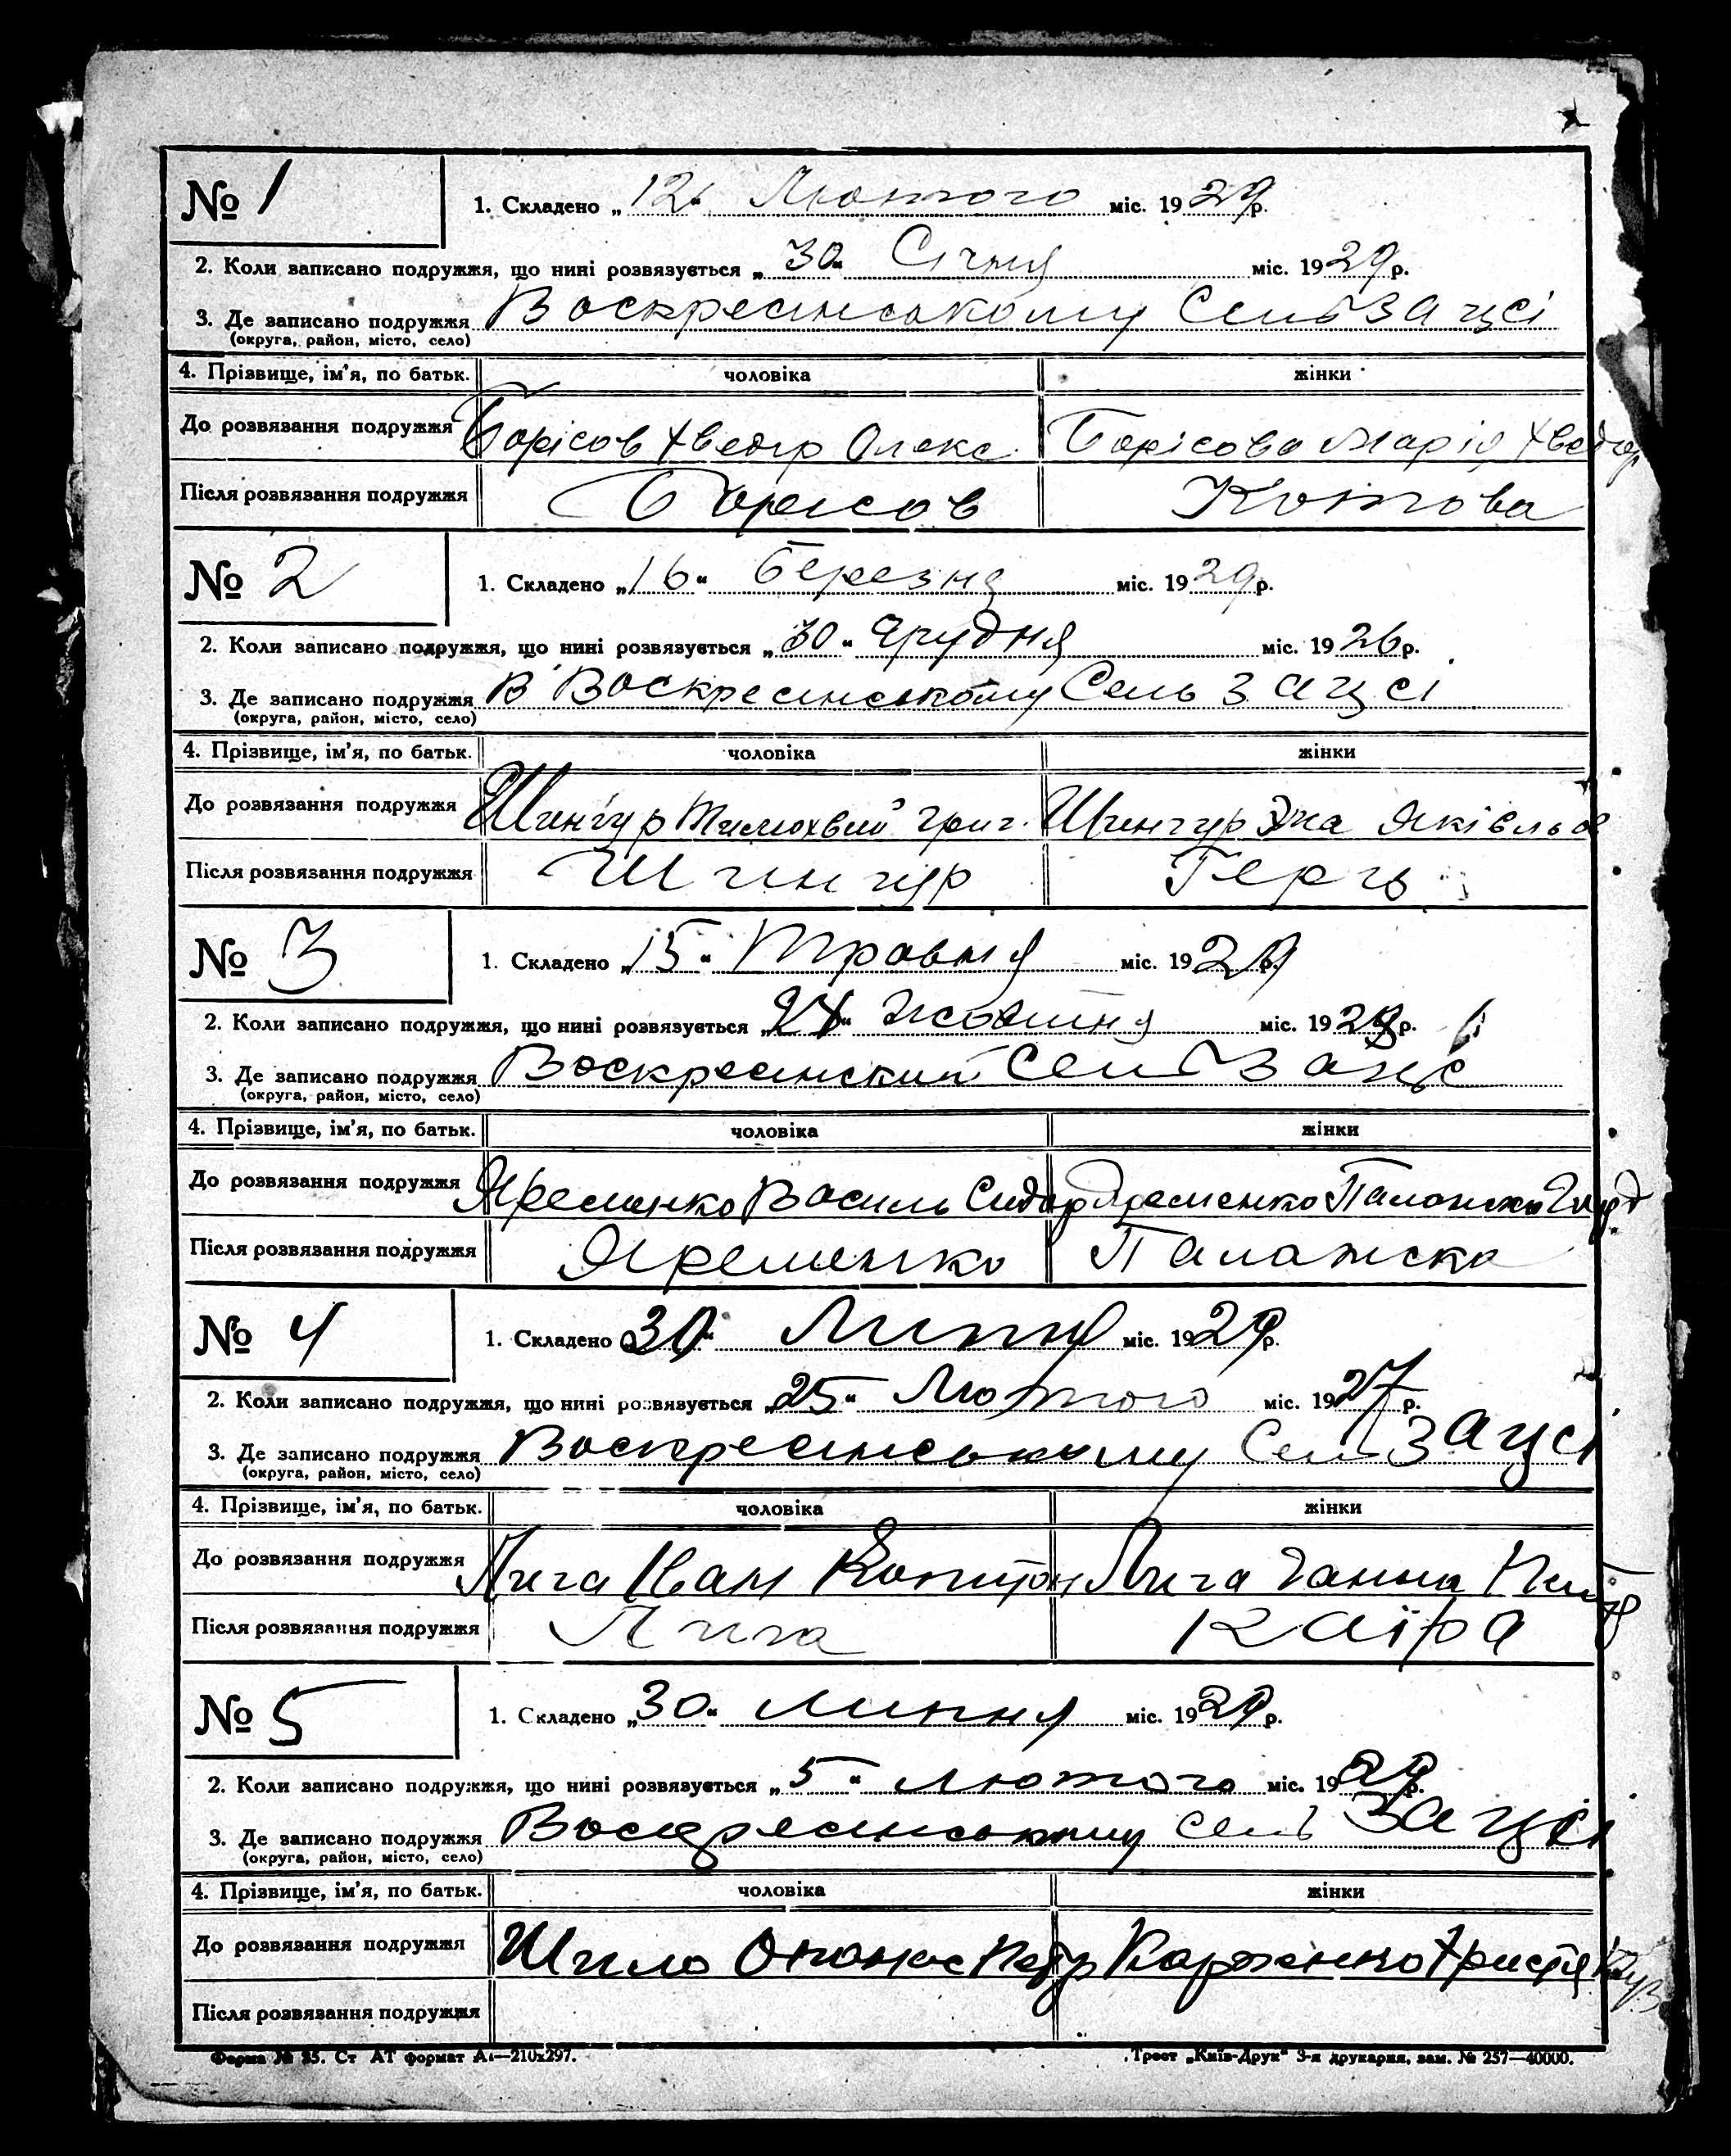 № 1
1. Складено „12“ Лютого міс. 1929р.
2. Коли записано подружжя, що нині розвязується „30“ Січня міс. 1929р.
3. Де записано подружжя Воскресенському СельЗагсі
(округа, район, місто, село)
4. Прізвище, ім'я, по батьк. чоловіка жінки
До розвязання подружжя Борісов Хведір Олекс. Борісова Марія Хведор
Після розвязання подружжя Борисов Котова
№ 2
1. Складено „16“ Березня міс. 1929р.
2. Коли записано подружжя, що нині розвязується „30“ Грудня міс. 1926р.
3. Де записано подружжя В Воскресенському Сельзагсі
(округа, район, місто, село)
4. Прізвище, ім'я, по батьк. чоловіка жінки
До розвязання подружжя Шингур Тимохвій Григ. Шингур Яківльов
Після розвязання подружжя Шингур Герц
№ 3
1. Складено „15“ Травня міс. 1929р.
2. Коли записано подружжя, що нині розвязується Жовтня міс. 19 р.
3. Де записано подружжя Воскресенский СельЗагс
(округа, район, місто, село)
4. Прізвище, ім'я, по батьк. чоловіка жінки
До розвязання подружжя Яременко Василь Сидор Яременко Палажка
Після розвязання подружжя Яременко Палажка
№ 4
1. Складено „30“ Липня міс. 1929р.
2. Коли записано подружжя, що нині розвязується „25“ Лютого міс. 1927р.
3. Де записано подружжя Воскресенському СельЗагсі
(округа, район, місто, село)
4. Прізвище, ім'я, по батьк. чоловіка жінки
До розвязання подружжя Лига Іван Лига Ганна
Після розвязання подружжя Лига Каїра
№ 5
1. Складено „30“ Липня міс. 1929р.
2. Коли записано подружжя, що нині розвязується „5“ лютого міс. 1929р.
3. Де записано подружжя Воскресенському сельЗагсі
(округа, район, місто, село)
4. Прізвище, ім'я, по батьк. чоловіка жінки
До розвязання подружжя Шило Опанас Петр Карженко Христя Куз
Після розвязання подружжя
Форма № 25. Ст АТ формат А4—210х297. Трест „Київ-Друк“ 3-я друкарня, зам. № 257—40000.